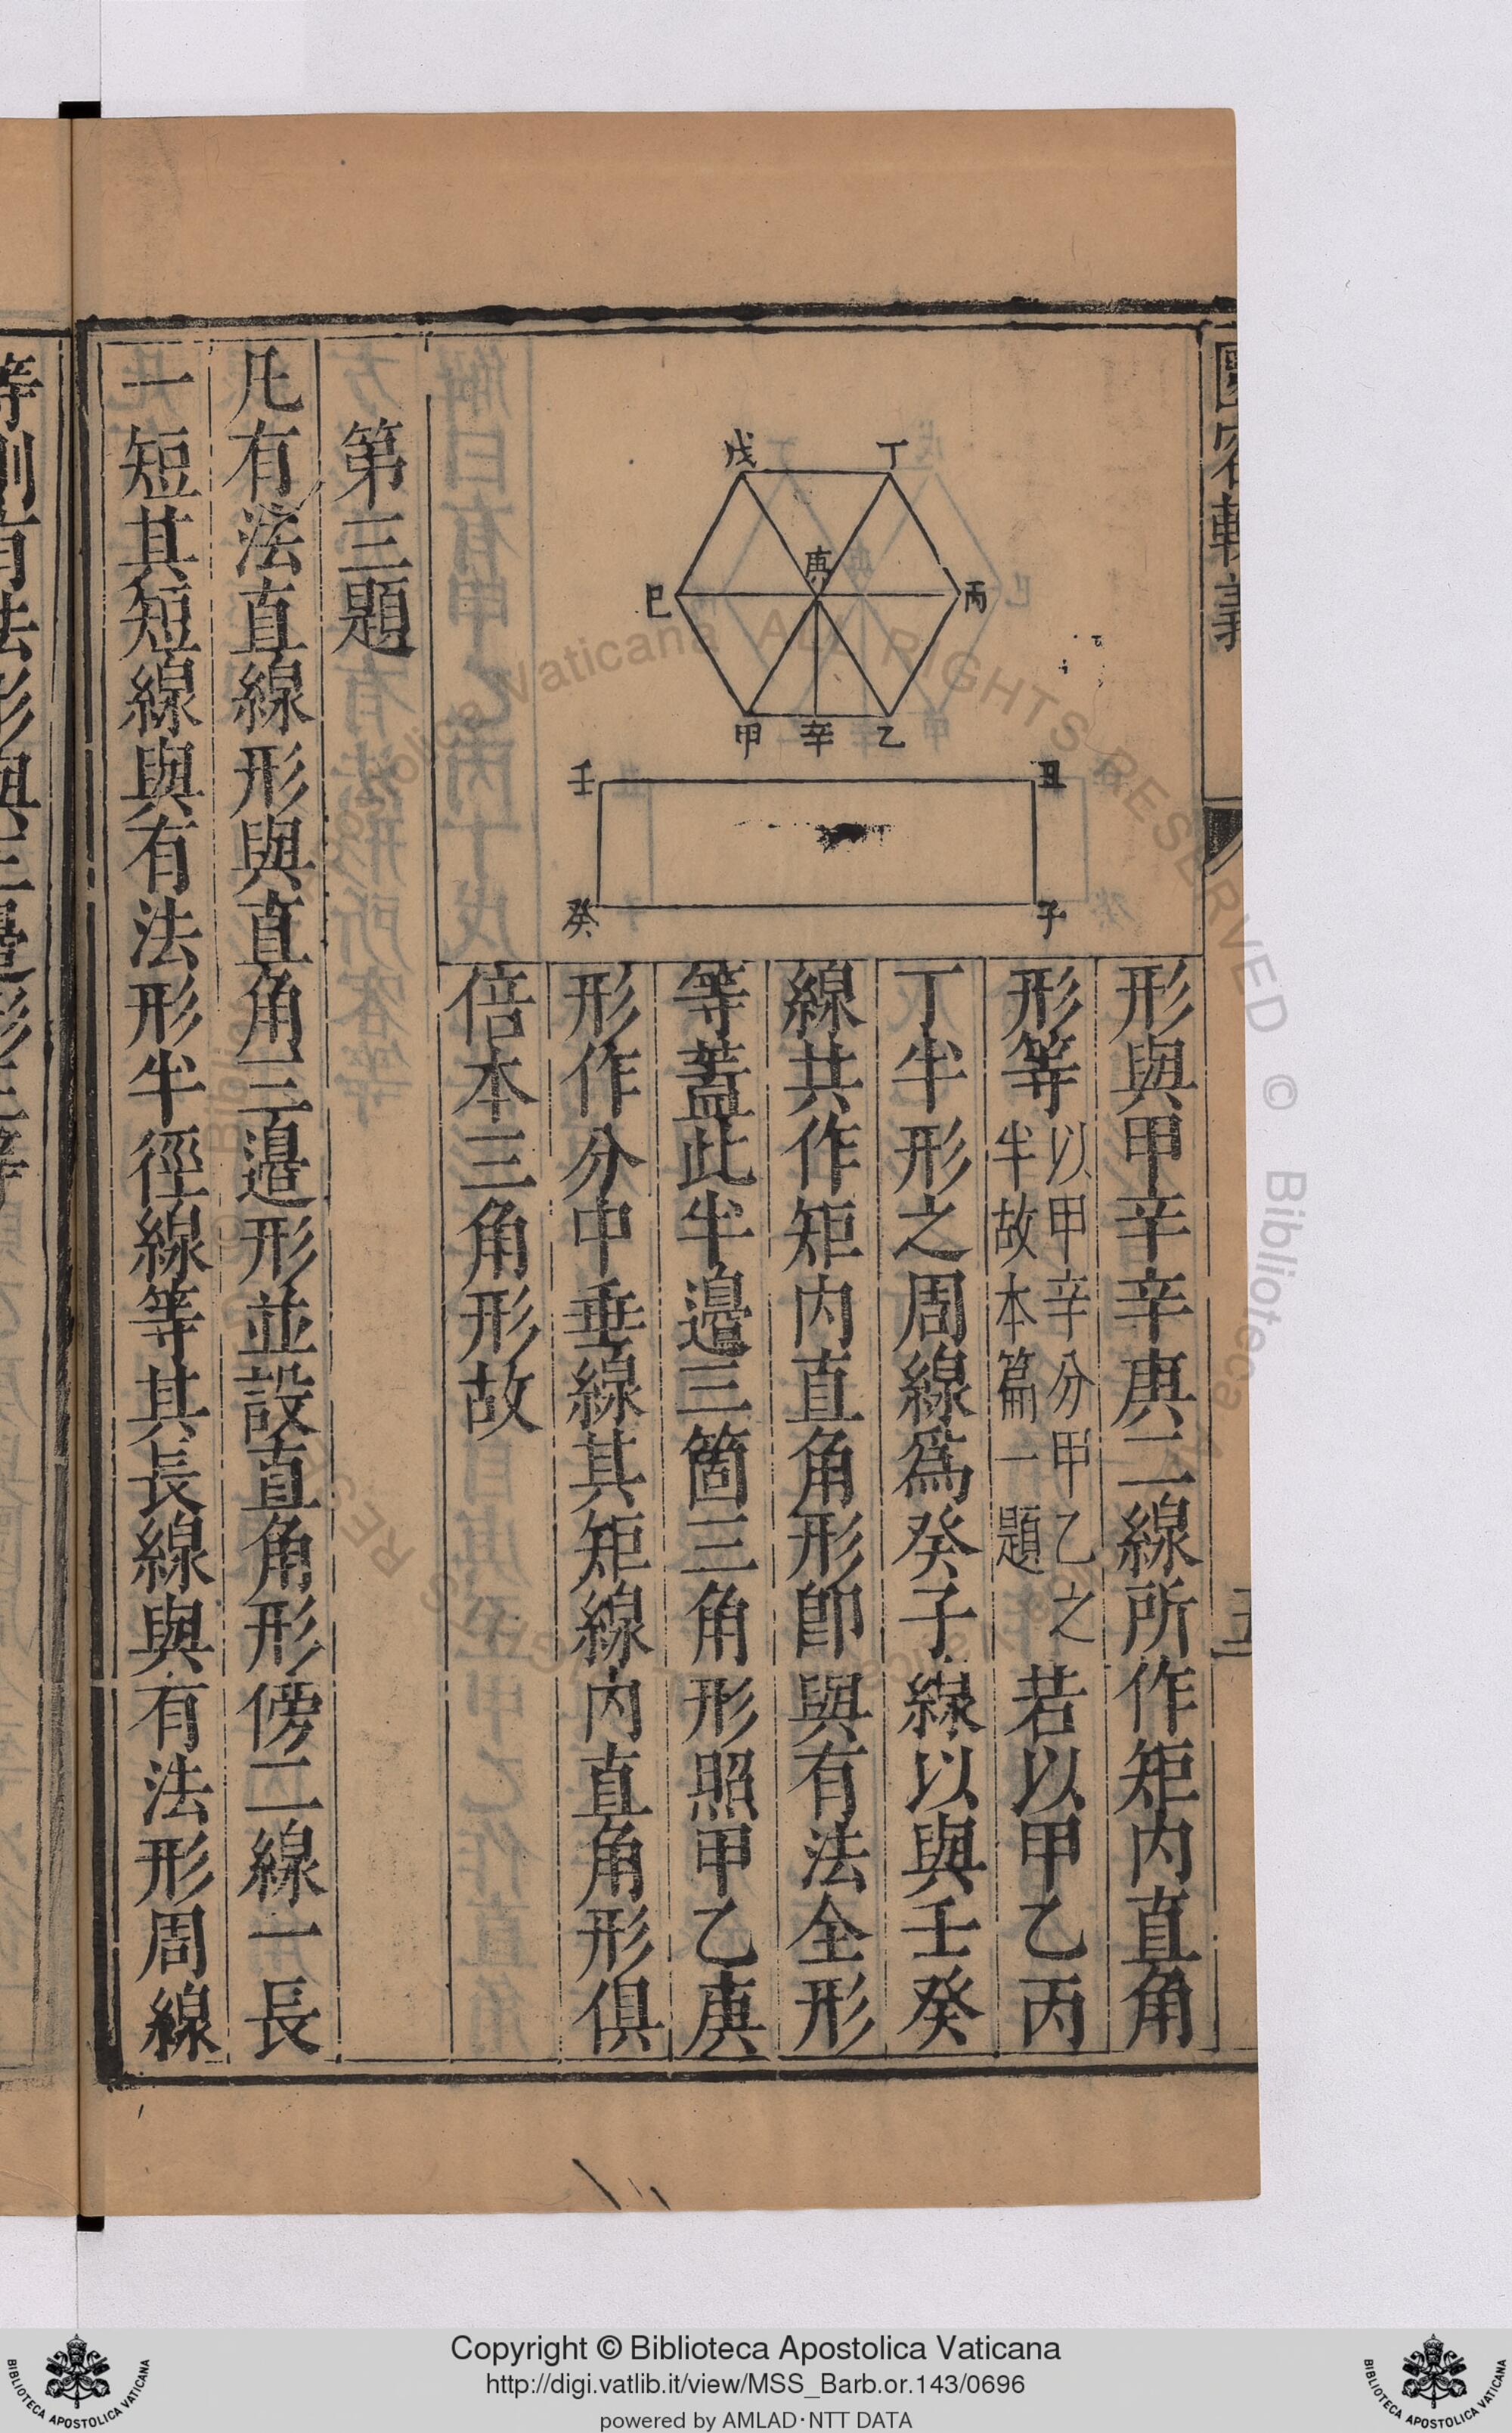 圜容較義
戊 丁
庚
巳 丙
甲 辛 乙
壬 丑
癸 子
形與甲辛辛庚二線所作矩内直角
形等以甲辛分甲乙之半故本篇一題若以甲乙丙
丁半形之周線爲癸子線以與壬癸
線共作矩内直角形卽與有法全形
等蓋此半邉三箇三角形照甲乙庚
形作分中垂線其矩線内直角形俱
倍本三角形故
第三題
凡有法直線形與直角三邉形並設直角形傍二線一長
一短其短線與有法形半徑線等其長線與有法形周線
Copyright © Biblioteca Apostolica Vaticana
http://digi.vatlib.it/view/MSS_Barb.or.143/0696
powered by AMLAD·NTT DATA
BIBLIOTECA APOSTOLICA VATICANA
BIBLIOTECA APOSTOLICA VATICANA